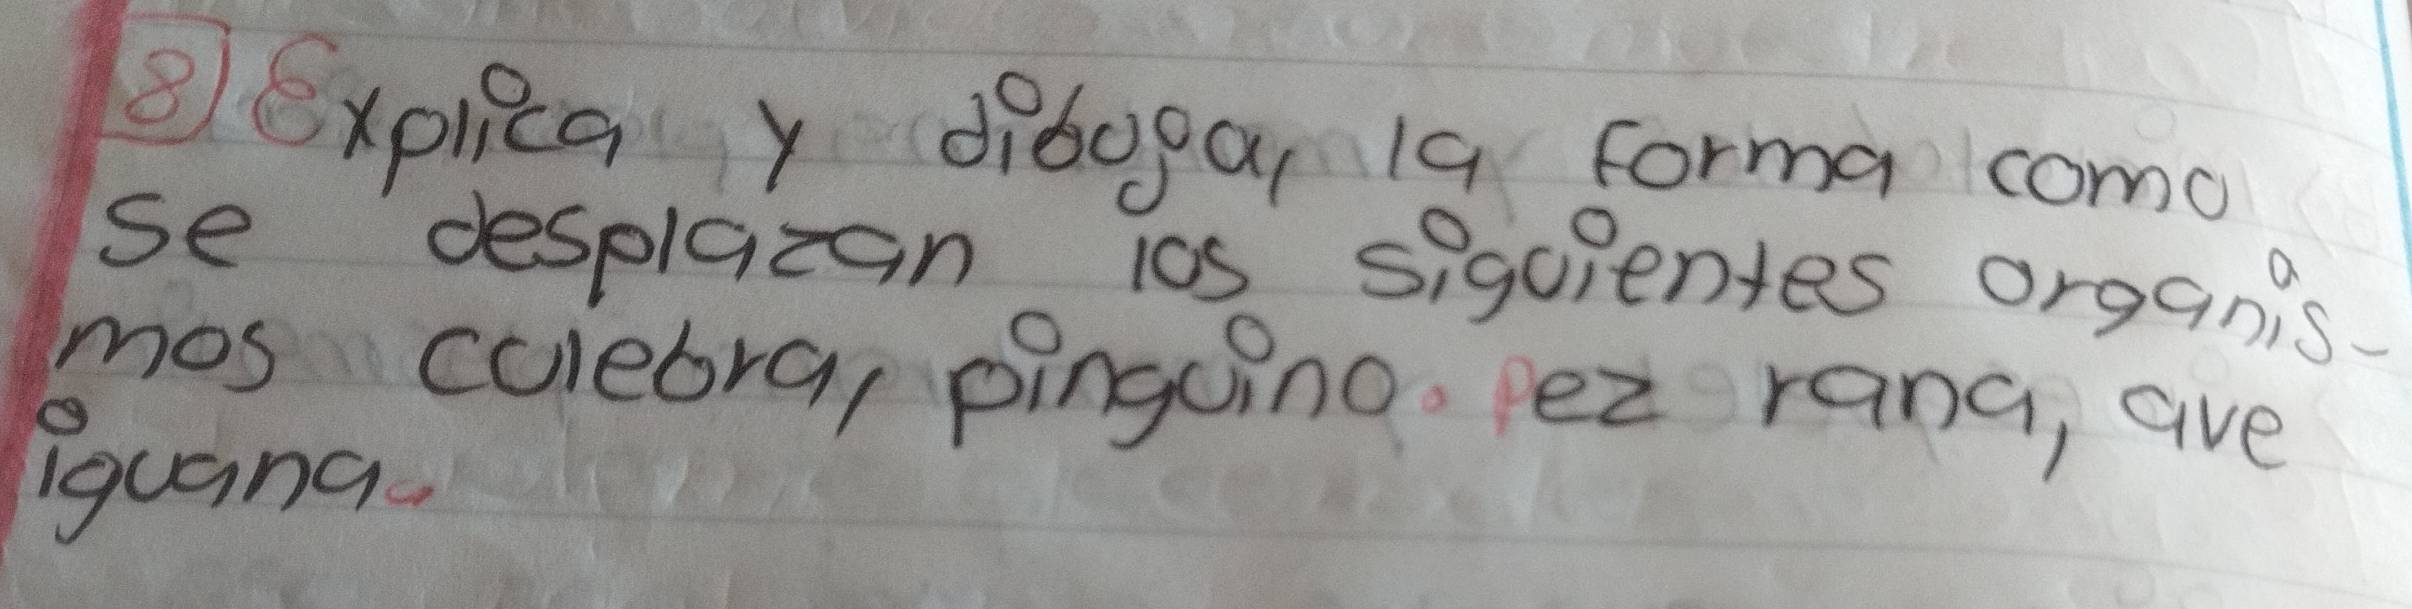 8) Explica y dibuja, la forma como
se desplazan los siguientes organis-
mos culebra, pinguino. Pez rana, ave
iguana.